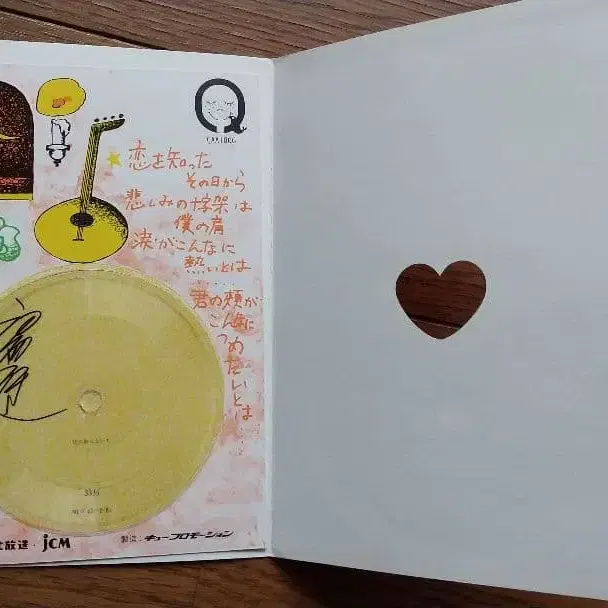 恋を知った
その日から
悲しみの十字架は
僕の肩
涙がこんなに
熱いとは
.....
君の頬が
こんなに
つめたいとは...
33⅓
放送・jCM
製造・キュープロモーション